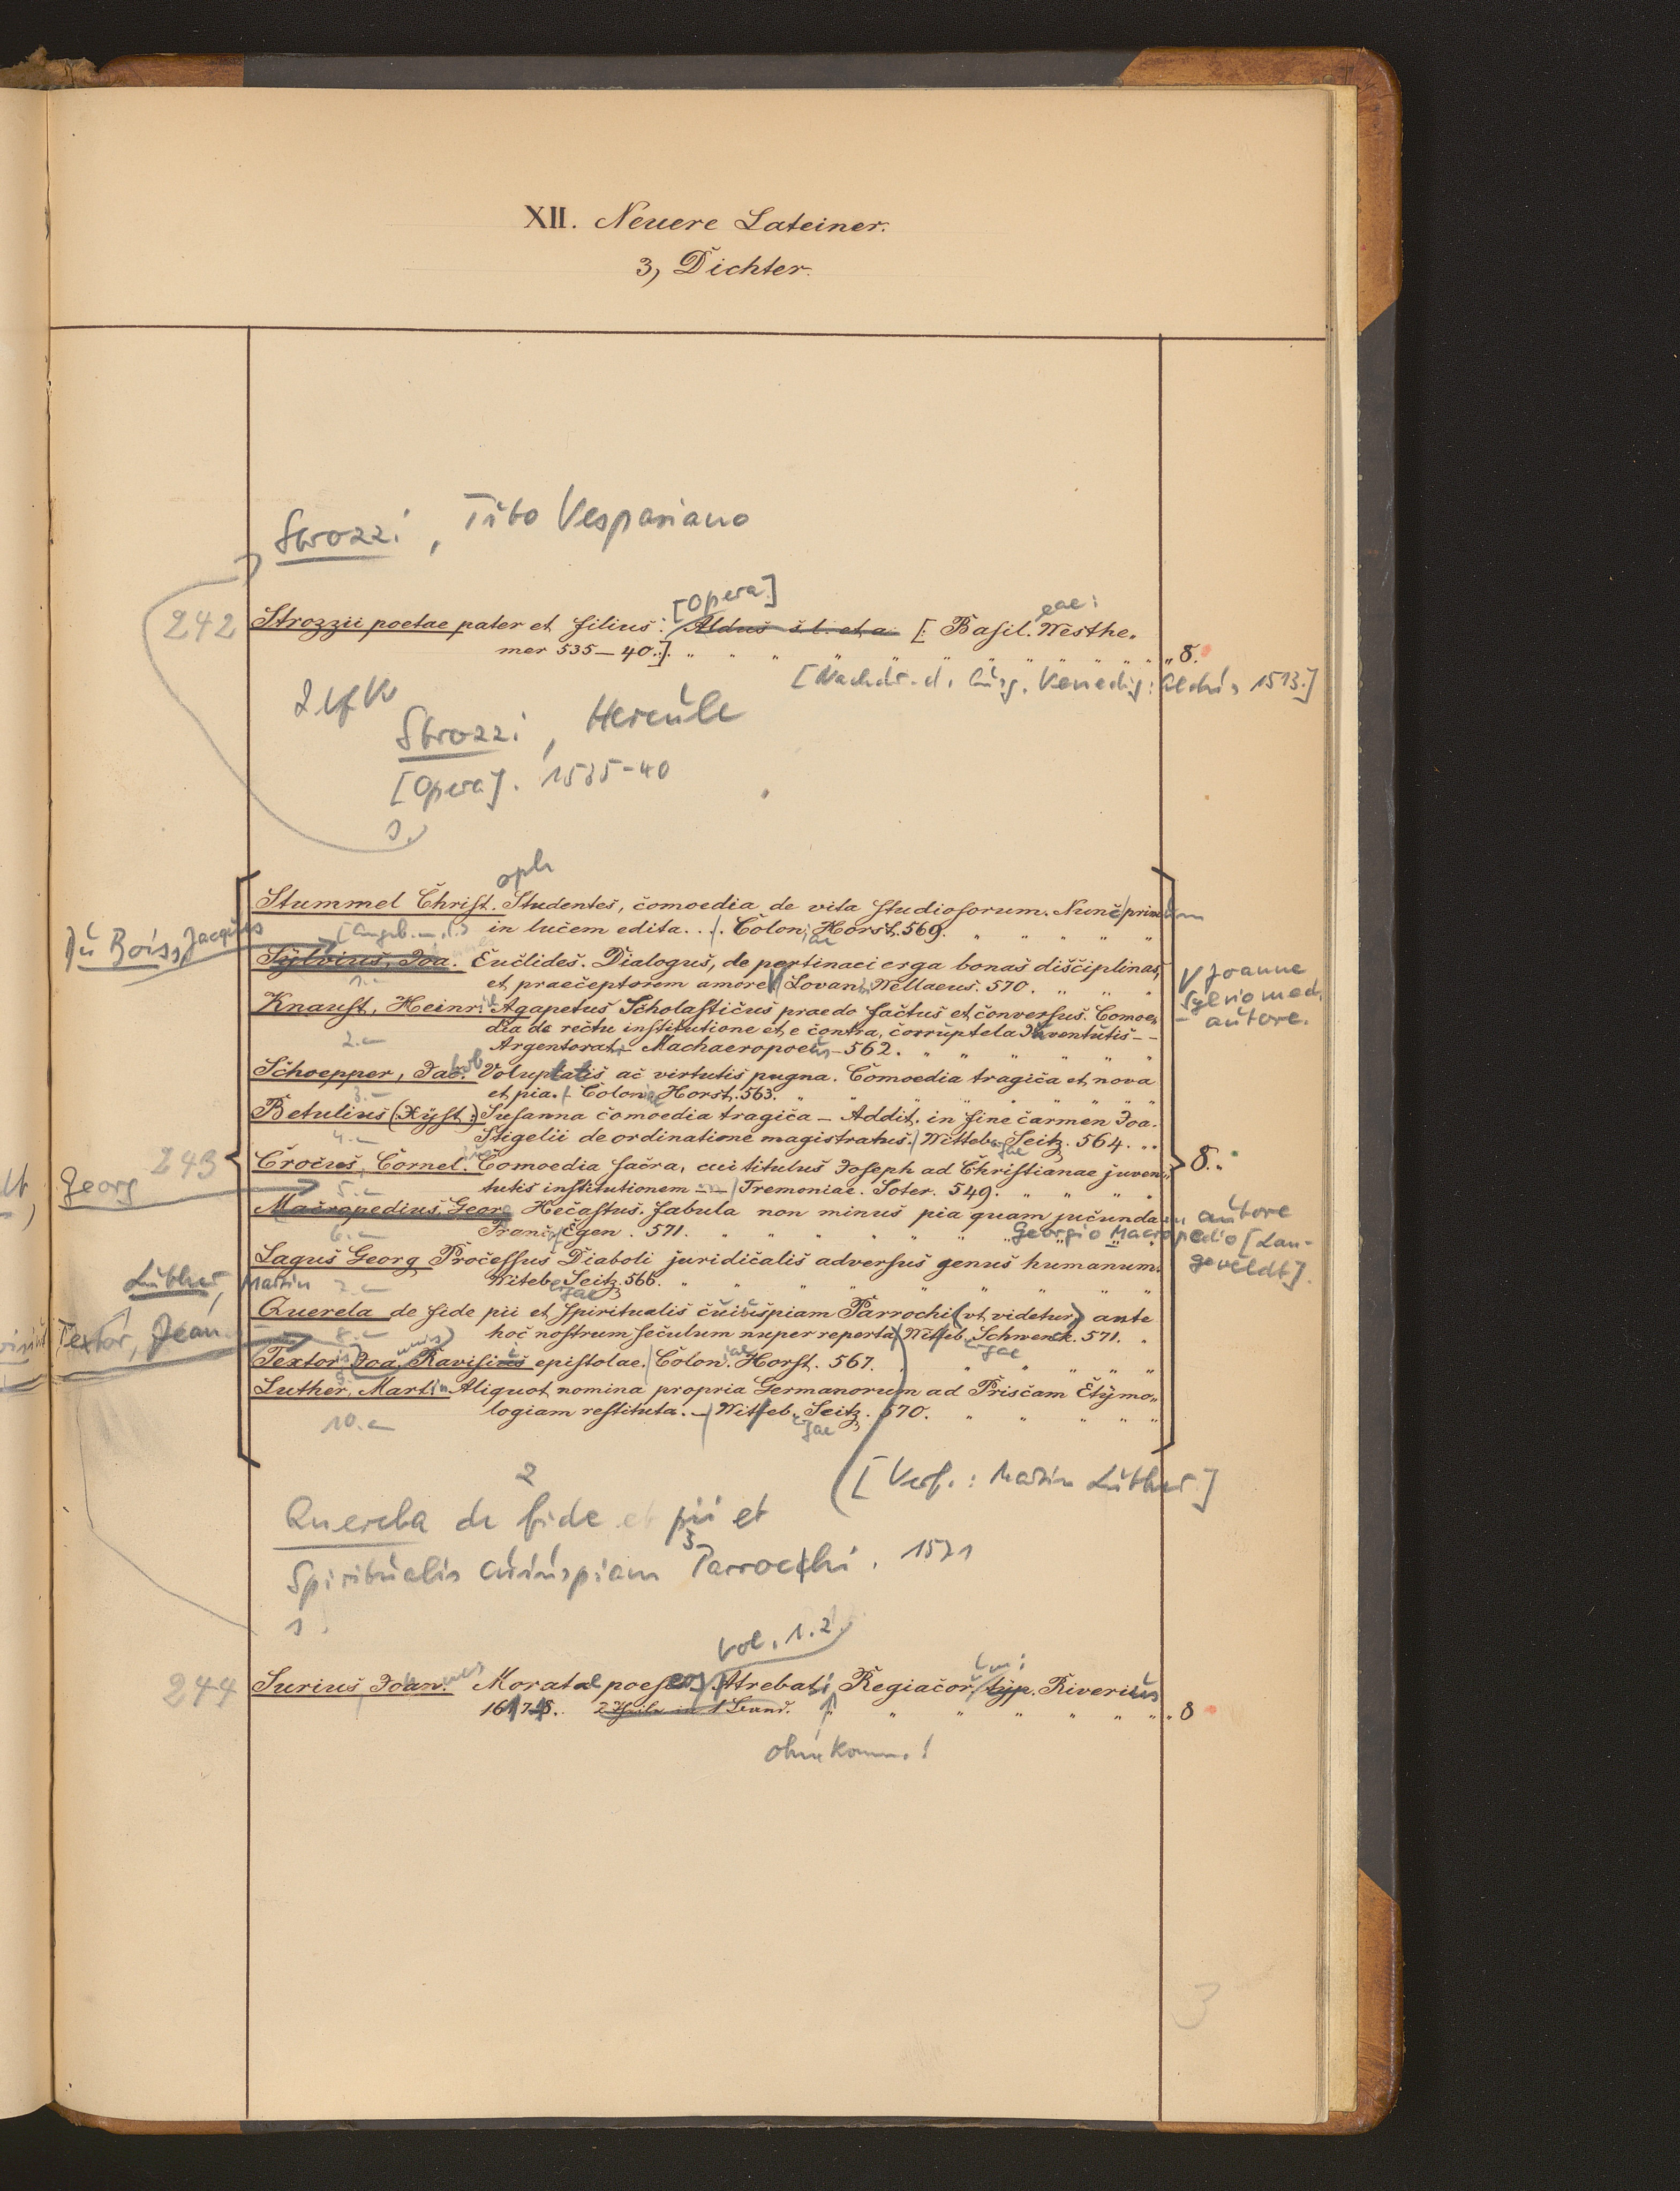 XII. Neuere Lateiner.
3, Dichter.
Strozzi, Tito Vespasiano
[Opera]
eae:
242 Strozzii poetae pater et filius: Aldus s. l. et a. [: Basil. Westhe-
mer 535-40.]. 8.
[Nachdr. d. Ausg. Venedig: Aldus 1513.]
2 Verf.
Strozzi, Hercule
[Opera]. 1535-40
s.
oph
Stummel Christ. Studentes, comoedia de vita studiosorum. Nunc primum
in lucem edita. Coloniae Horst. 569.
[Angeb.
Du Bois, Jacques
Sylvius, Joa. Euclides. Dialogus, de pertinaci erga bonas disciplinas,
et praeceptorem amore Lovanii Wellaeus. 570.
1.-
V Joanne
Sylvio med.
autore.
Knaust, Heinr. Agapetus Scholasticus praedo factus et conversus. Comoe-
dia de recta institutione et, e contra, corruptela Juventutis--
2.- Argentorati Machaeropoeus 562.
Schoepper, Jacob Voluptatis ac virtutis pugna. Comoedia tragica et nova
3.- et pia. Coloniae Horst. 563.
Betulius (Xyst.) Susanna comoedia tragica - Addit. in fine carmen Joa.
4.- Stigelii de ordinatione magistratus. Wittebergae Seitz. 564.
243 Crocus, Cornel. Comoedia sacra, cui titulus Joseph ad Christianae juven- 8.
5.- tutis institutionem - Tremoniae. Soter. 549.
Georg
Macropedius, Georg Hecastus. fabula non minus pia quam jucunda autore
6.- Franc. Egen. 571. Georgio Macropedio [Lan-
geveldt].
Lagus Georg Processus Diaboli juridicalis adversus genus humanum.
7.- Witebergae Seitz. 566.
Luther, Martin
Querela de fide pii et spiritualis cuiuspiam Parrochi (vt videtur) ante
8.- hoc nostrum seculum nuper reperta Witebergae Schwenck. 571.
Textor, Jean
Textoris Joannis Ravisii epistolae. Coloniae Horst. 567.
9.
Luther, Martin Aliquot nomina propria Germanorum ad Priscam Etymo-
logiam restituta. - Witebergae Seitz. 570.
10.-
[Verf.: Martin Luther]
2
Querela de fide pii et
3
Spiritualis cuiuspiam Parrochi. 1571
1.
vol. 1.2
244 Surius Joannes Moratae poeseos Atrebati, Regiacorum: typ. Riverius
1617-18. 2 Theile in 1 Band. 8
ohne Komm.!
3